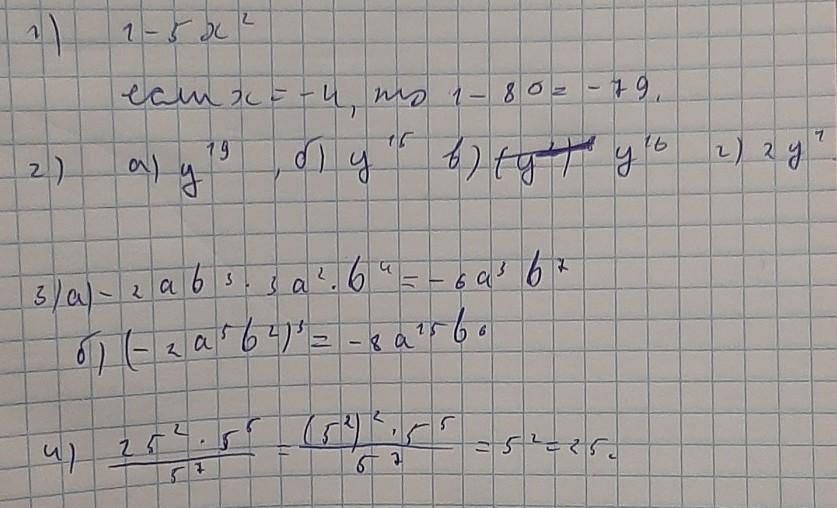 1) 1-5x²
если x=-4, то 1-80=-79.
2) а) y¹⁹, б) y¹⁵ в) y¹⁶ г) 2y⁷
3) а) -2ab³·3a²·b⁴=-6a³b⁷
б) (-2a⁵b²)³=-8a¹⁵b⁶
4) 25²·5⁵/5⁷=(5²)²·5⁵/5⁷=5²=25.